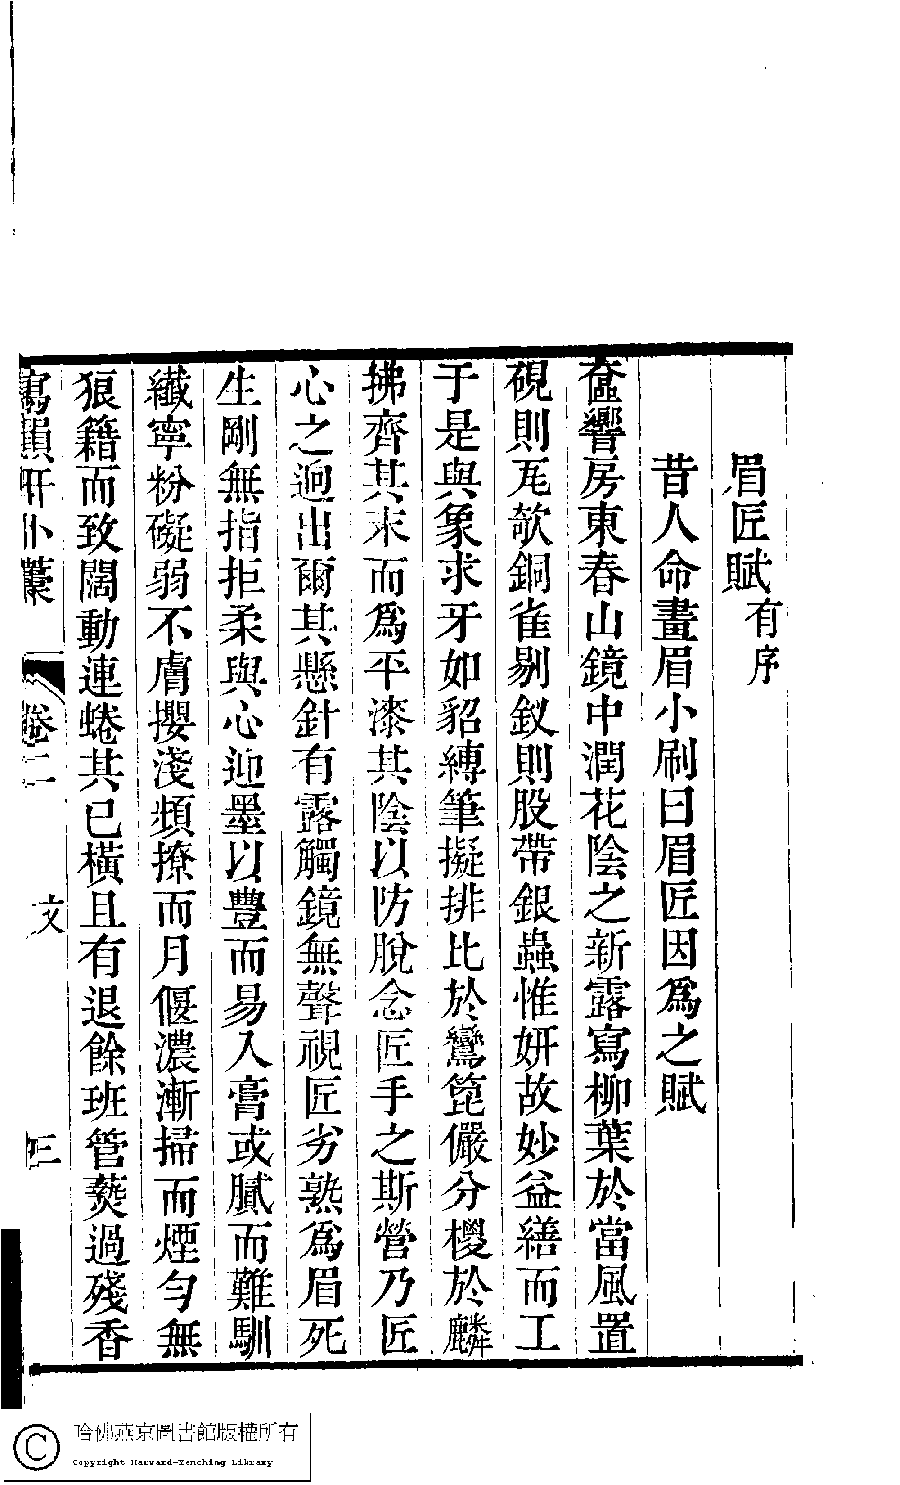 眉匠賦有序
昔人命畫眉小刷曰眉匠因爲之賦
奩響房東春山鏡中潤花陰之新露寫柳葉於當風置
硯則瓦欹銅雀剔釵則股帶銀蟲惟姸故妙益繕而工
于是與象求牙如貂縛筆擬排比於鸞箆儼分櫻於麟
拂齊其末而爲平漆其陰以防脫念匠手之斯營乃匠
心之迥出爾其懸針有露觸鏡無聲視匠劣熟爲眉死
生剛無指拒柔與心迎墨以豐而易入膏或膩而難馴
纖寧粉礙弱不膚攖淺頻撩而月偃濃漸掃而煙勻無
狼籍而致闊動連蜷其已橫且有退餘班管爇過殘香
寓韻軒小藁
卷二
文
三
哈佛燕京圖書館版權所有
Copyright Harvard-Yenching Library